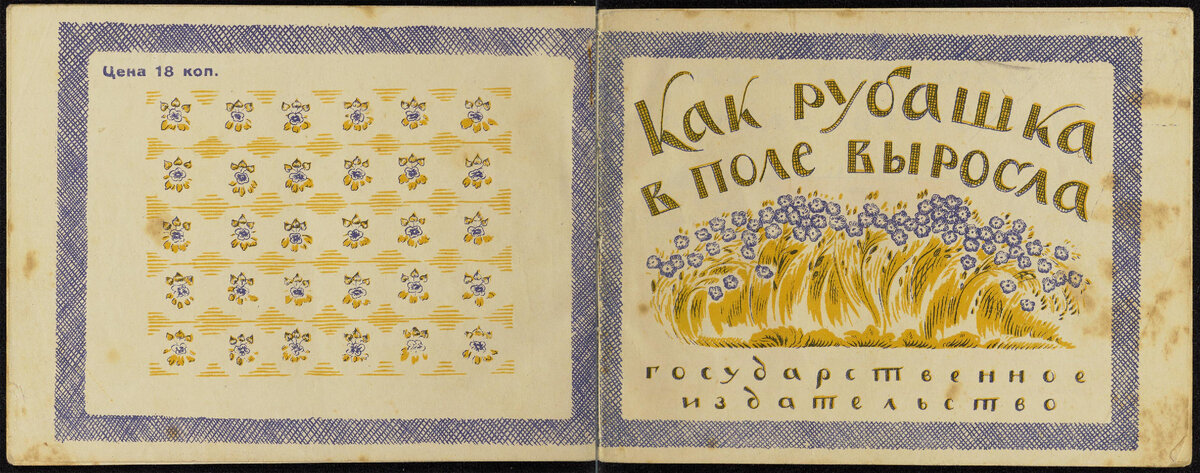 Цена 18 коп.
Как рубашка
в поле выросла
государственное
издательство